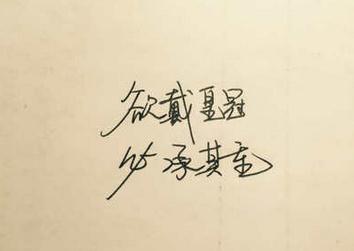 欲戴皇冠
必承其重